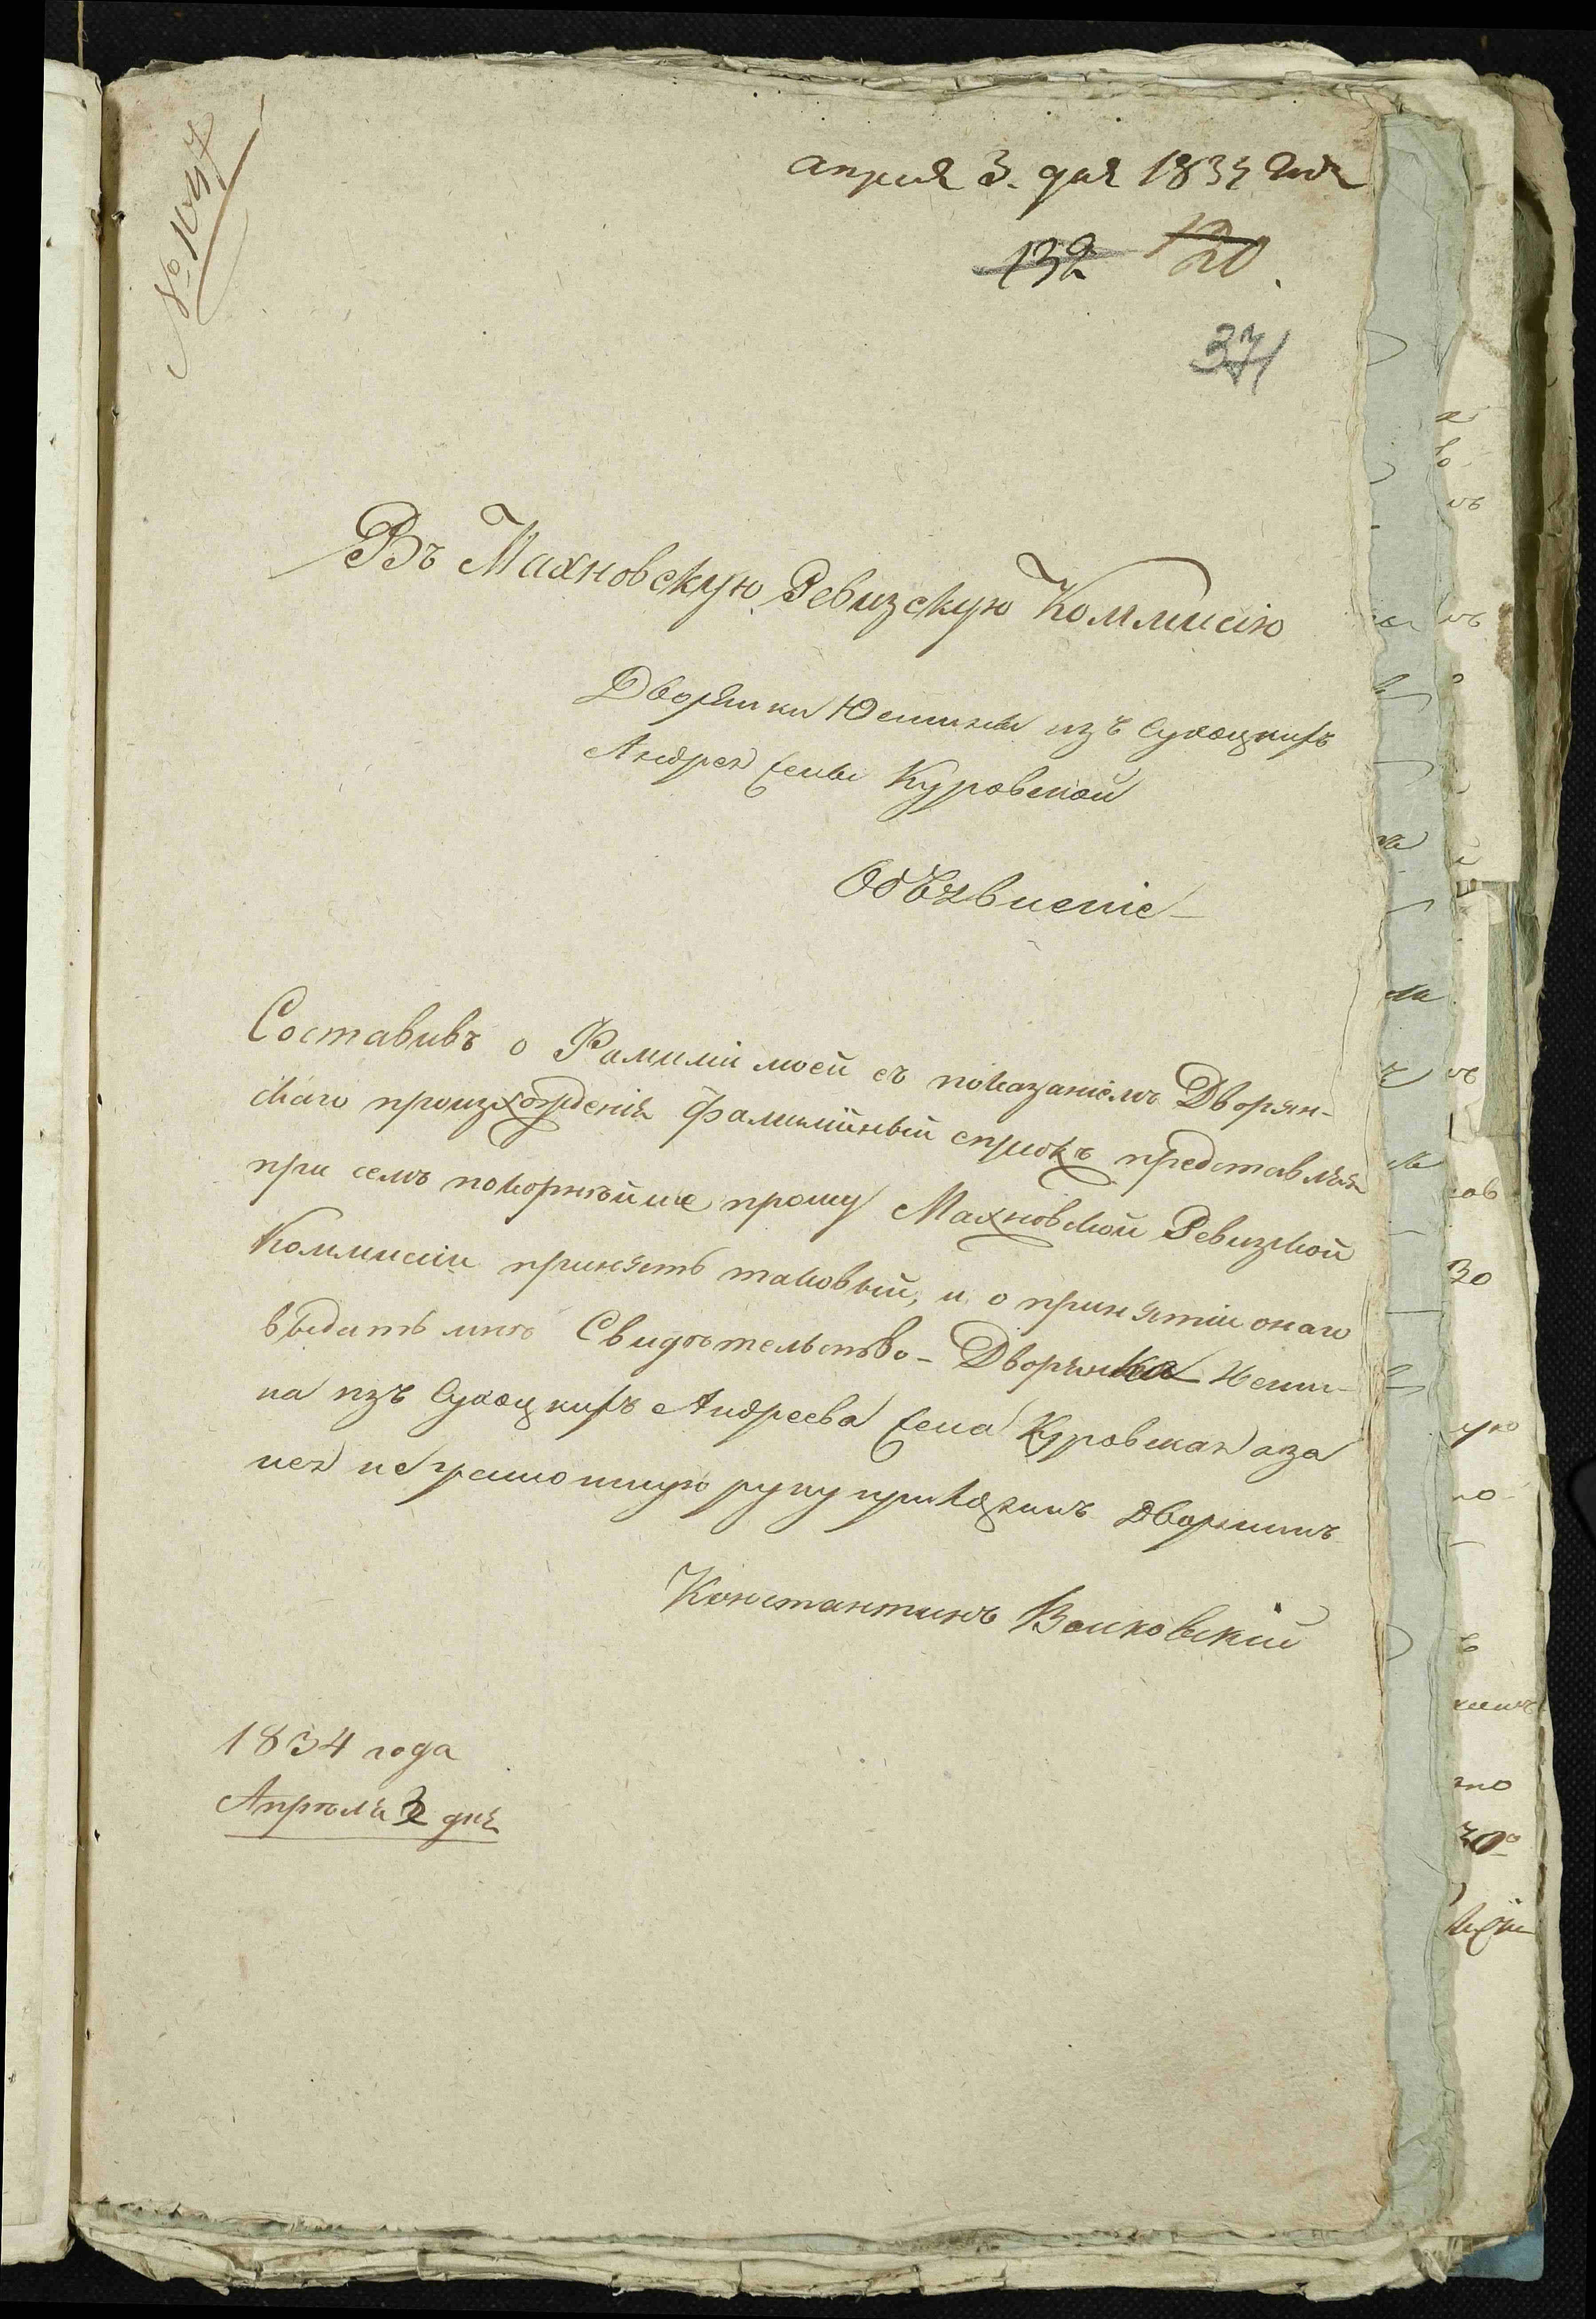 № 1047
апреля 3. дня 1834 года
132 120
371
Въ Махновскую Ревизскую Коммисію
Дворянки Юстины изъ Сухоцкихъ
Андреевны Куровской
Объявленіе
Составивъ о Фамиліи моей съ показаніемъ Дворян-
скаго произхожденія фамилійный списокъ представляя
при семъ покорнѣйше прошу Махновской Ревизкой
Коммисіи принять таковый, и о принятіи онаго
выдать мнѣ Свидѣтельство - Дворянка Юсти-
на изъ Сухоцкихъ Андреева Куровская а за
нея неграмотную руку приложилъ Дворянинъ
Константинъ
1834 года
Апрѣля 3 дня